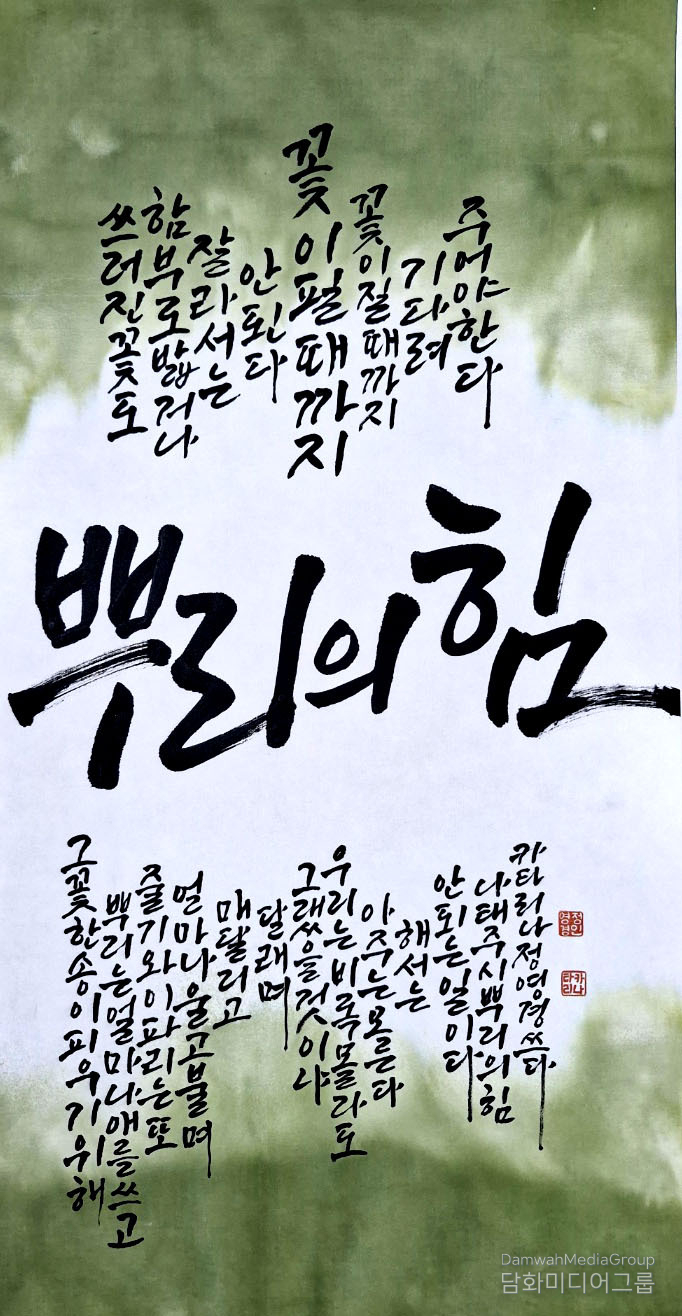 쓰러진꽃도
함부로밟거나
잘라서는
안된다
꽃이필때까지
꽃이질때까지
기다려
주어야한다
뿌리의힘
그꽃한송이피우기위해
뿌리는얼마나애를쓰고
줄기와이파리는또
얼마나울고불며
매달리고
달래며
그랬을것이냐
우리는비록몰라도
아주는모른다
해서는
안되는일이다
나태주시뿌리의힘
카타리나정영경쓰다
정영경인
카타리나
DamwahMediaGroup
담화미디어그룹